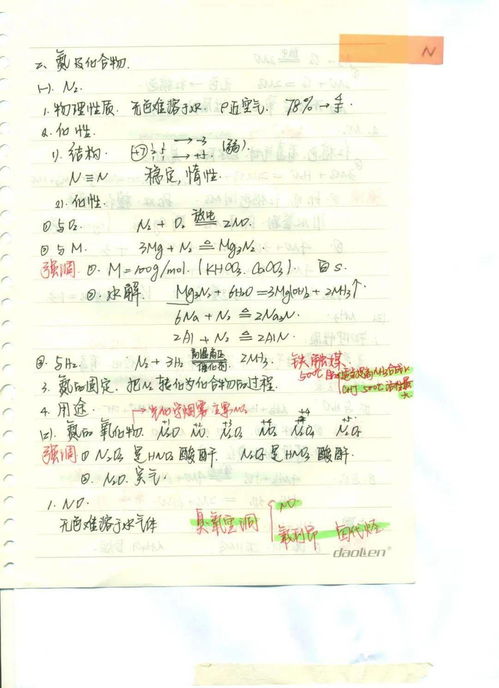 N
二、氮及化合物.
(一). N₂.
1. 物理性质. 无色难溶于水 ρ近空气. 78% →
2. 化性.
1). 结构. +7 → -3 → +5 (弱).
N≡N 稳定, 惰性.
2). 化性.
① 与O₂. N₂ + O₂ 放电 2NO.
② 与M. 3Mg + N₂ ≙ Mg₃N₂.
强调 ①. M=100g/mol. (KHCO₃. CaCO₃).
②. 水解. Mg₃N₂ + 6H₂O = 3Mg(OH)₂ + 2NH₃↑
6Na + N₂ ≙ 2Na₃N.
2Al + N₂ ≙ 2AlN.
③. 与H₂. N₂ + 3H₂ 高温高压 催化剂 2NH₃. 铁触媒
500℃
3. 氮的固定. 把N₂转化为化合物的过程.
4. 用途. 光化学烟雾
(二). 氮的氧化物. N₂O NO N₂O₃ NO₂ N₂O₄ N₂O₅
强调 ① N₂O₃ 是HNO₂ 酸酐. N₂O₅ 是HNO₃ 酸酐.
②. N₂O 笑气.
1. NO.
无色难溶于水气体 臭氧空洞 NO
氟利昂 卤代烃
daolien®